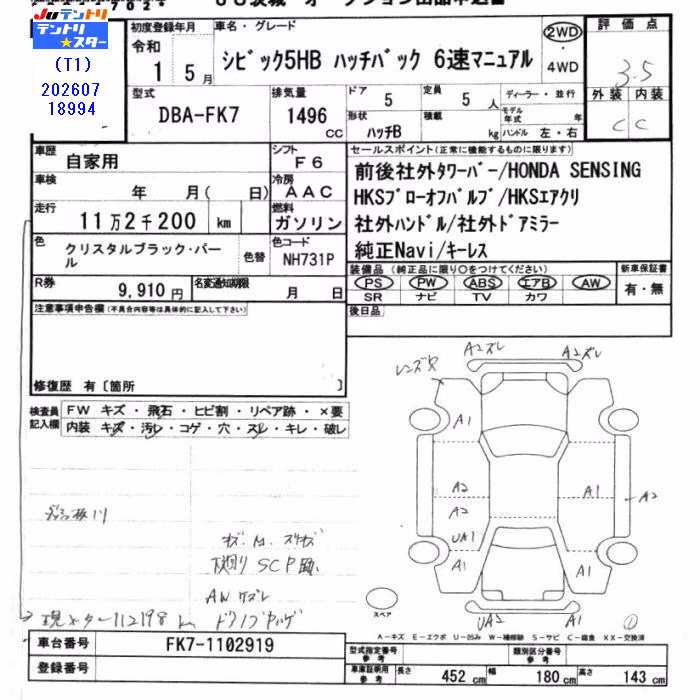 JUテントリ
テントリ
★スター
(T1)
202607
18994
初度登録年月
令和
1 5月
車名・グレード
シビック5HB ハッチバック 6速マニュアル
2WD
・
4WD
評価点
3.5
外装 内装
C C
型式
DBA-FK7
排気量
1496
cc
ドア
5
定員
5 人
形状
ハッチB
積載
kg
ディーラー・並行
モデル年式 年
ハンドル 左・右
車歴
自家用
シフト
F6
車検
年 月( 日)
冷房
AAC
走行
11万2千200 km
燃料
ガソリン
セールスポイント(正常に機能するものに限ります)
前後社外タワーバー/HONDA SENSING
HKSブローオフバルブ/HKSエアクリ
社外ハンドル/社外ドアミラー
純正Navi/キーレス
色
クリスタルブラック・パール
色替
色コード
NH731P
装備品(純正品に限り○をつけてください)
PS PW ABS エアB AW
SR ナビ TV カワ
新車保証書
有・無
R券
9,910円
名変通知期限
月 日
後日品
注意事項申告欄(不具合内容等は具体的に記入して下さい)
修復歴 有〔箇所 〕
検査員
記入欄
FW キズ・飛石・ヒビ割・リペア跡・×要
内装 キズ・汚レ・コゲ・穴・スレ・キレ・破レ
A2ズレ A2ズレ
レンズ
A1
A2
A2
UA1
A1
A1
A2
A1
UA2 A1
①
下廻り SCP
AW
現メーター112198 km
スペア
A-キズ E-エクボ U-凹み W-補修跡 S-サビ C-腐食 XX-交換済
車台番号
FK7-1102919
登録番号
型式指定番号
参考
類別区分番号
参考
車庫証明用
参考
長さ 452 cm 幅 180 cm 高さ 143 cm